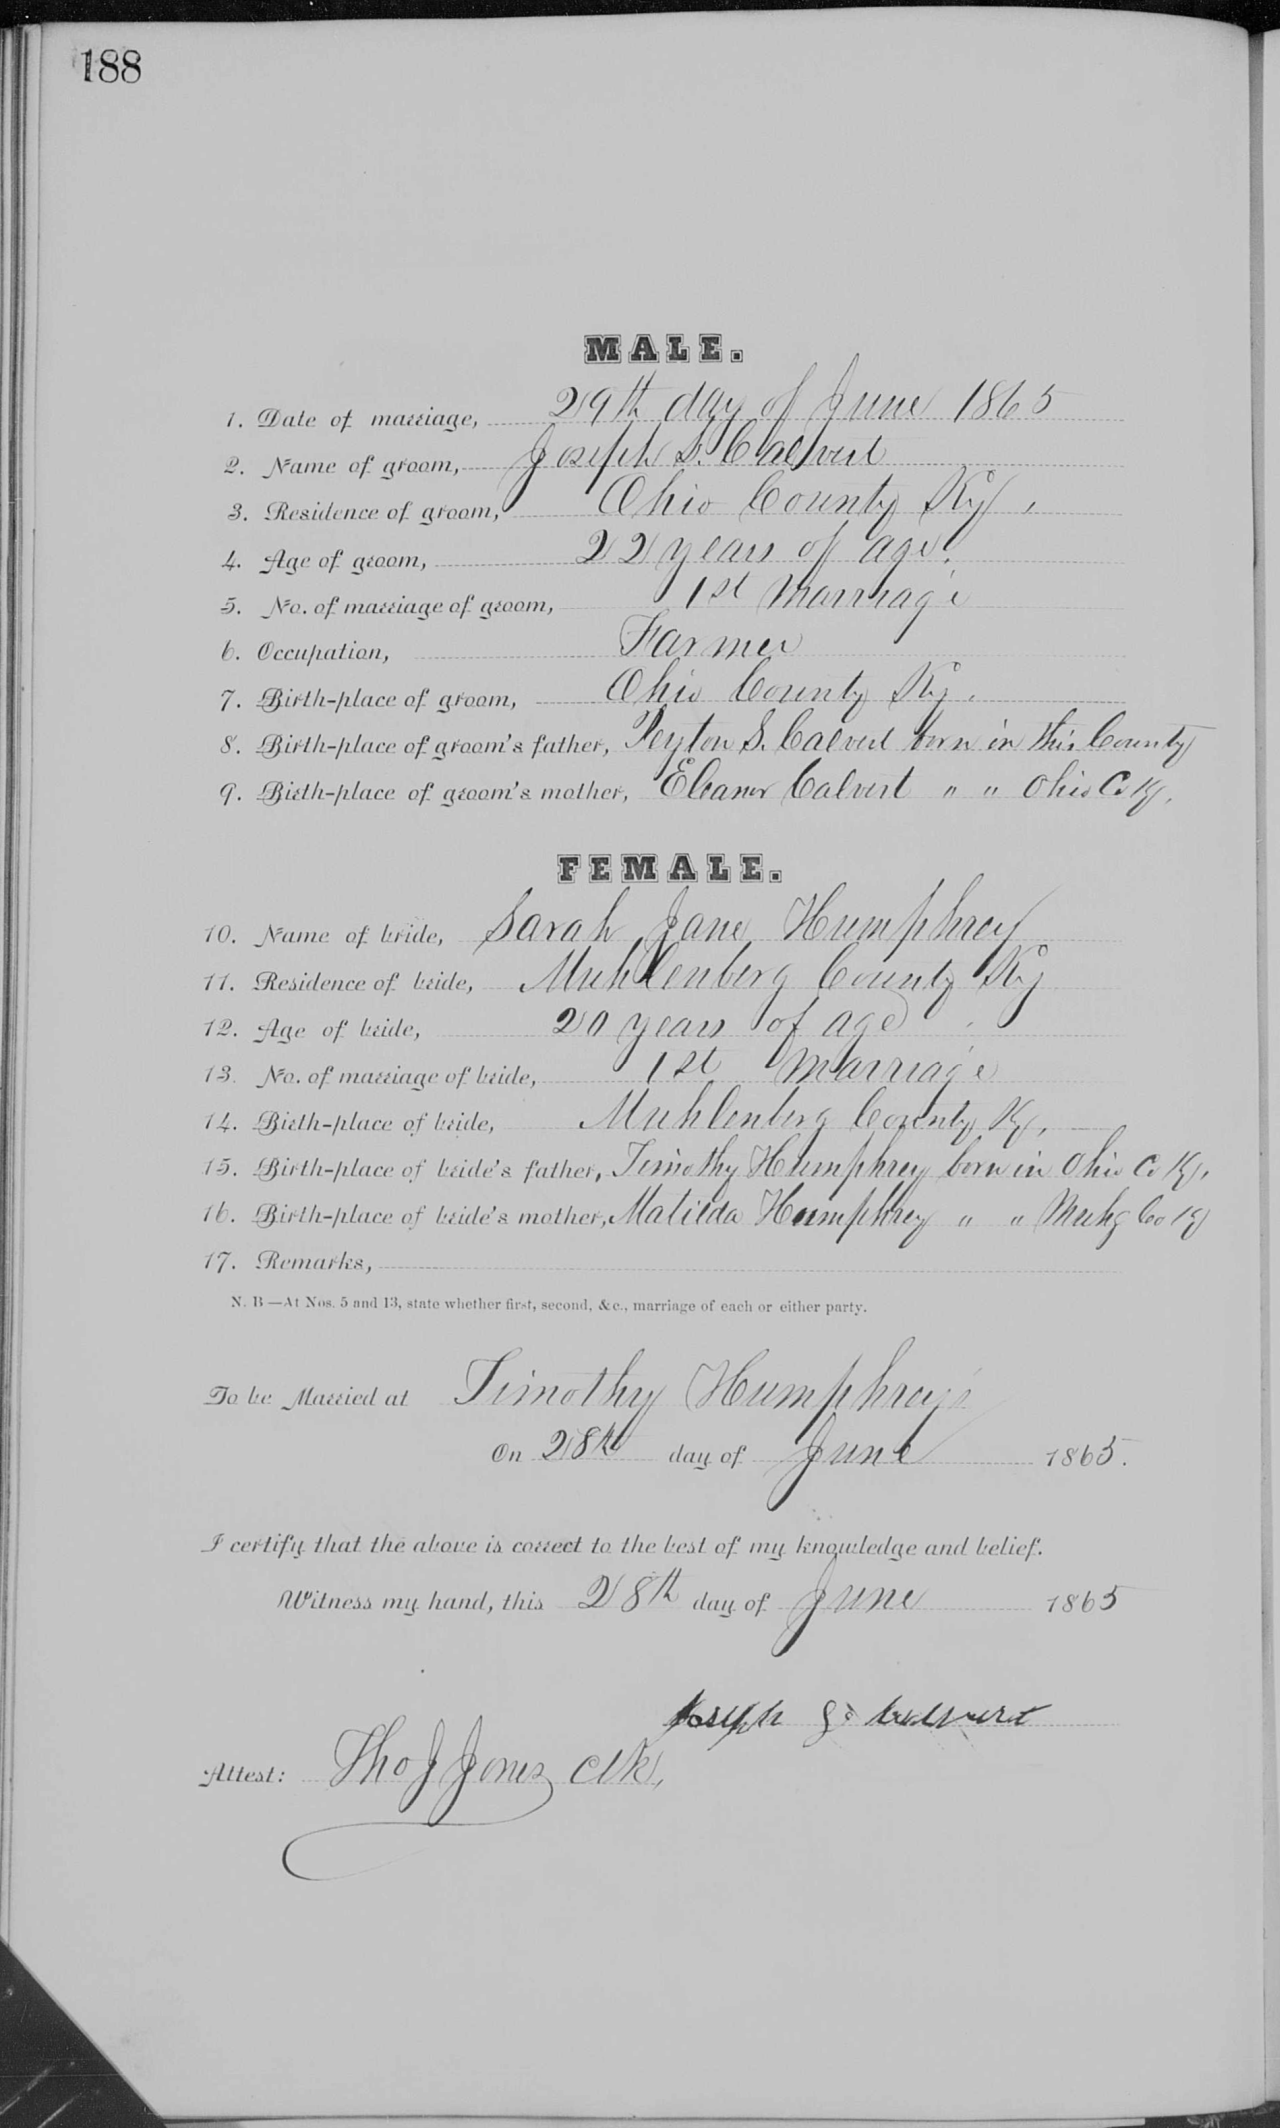 188
MALE.
1. Date of marriage, 29th day of June 1865
2. Name of groom, Joseph S. Calvert
3. Residence of groom, Ohio County Ky.
4. Age of groom, 22 years of age.
5. No. of marriage of groom, 1st marriage
6. Occupation, Farmer
7. Birth-place of groom, Ohio County Ky.
8. Birth-place of groom's father, Peyton S. Calvert born in this County
9. Birth-place of groom's mother, Eleanor Calvert " " Ohio Co Ky.
FEMALE.
10. Name of bride, Sarah Jane Humphrey
11. Residence of bride, Muhlenberg County Ky
12. Age of bride, 20 years of age
13. No. of marriage of bride, 1st marriage
14. Birth-place of bride, Muhlenberg County Ky.
15. Birth-place of bride's father, Timothy Humphrey born in Ohio Co Ky.
16. Birth-place of bride's mother, Matilda Humphrey " " Muhg Co Ky
17. Remarks,
N. B—At Nos. 5 and 13, state whether first, second, &c., marriage of each or either party.
To be Married at Timothy Humphrey's
On 28th day of June 1865.
I certify that the above is correct to the best of my knowledge and belief.
Witness my hand, this 28th day of June 1865
Joseph S. Calvert
Attest: Tho J Jones Clk,